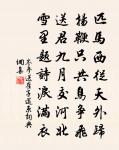 匹馬西從天外歸
揚鞭只共鳥爭飛
送君九月交河北
雪里題詩淚滿衣
岑參送崔子還京詞典
網集